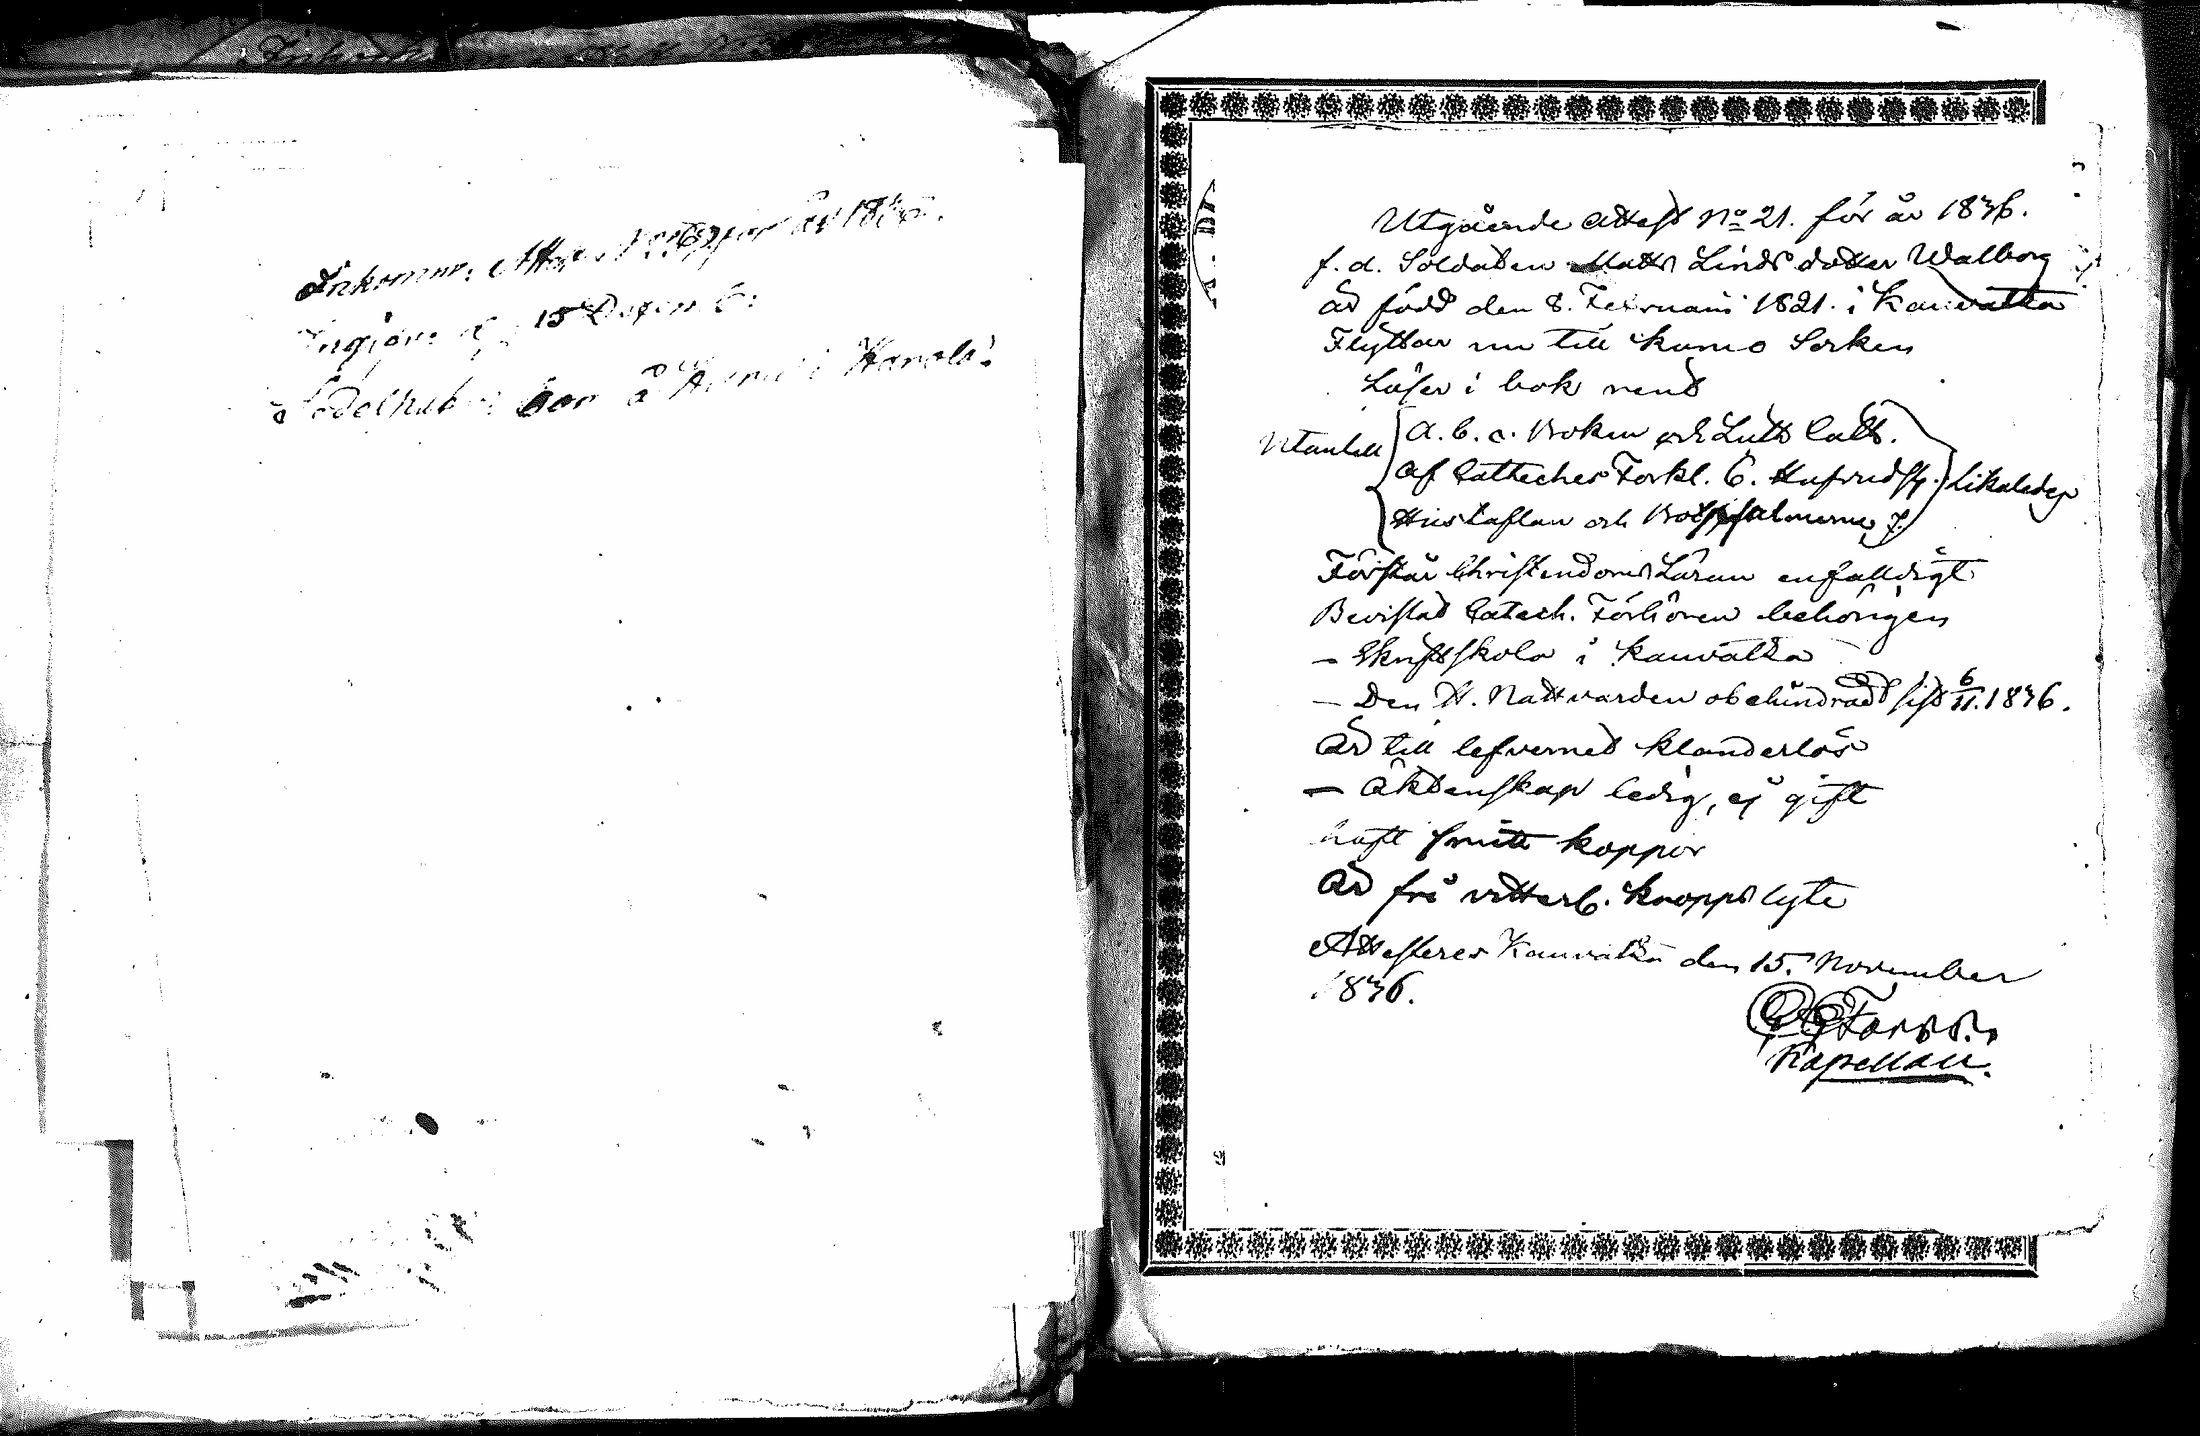 Inkomm. Attest No 67 för år 1836.
15 Decemb:
Utgående Attest No 21. för år 1836.
f. d. Soldaten Matts Linds dotter Walborg
är född den 8. Februari 1821. i Kauvatsa
Flyttar nu till Kumo Socken
Läser i bok rent
Utantill A. b. c. Boken och Luth. Cat.
af Catheches Förkl. 6. Hufvudst. Likaledes
Hustaflan och Botpsalmerne 7.
Förstår Christendoms Läran enfaldigt
Bevistat Catech. Förhören behörigen
– Skriftskola i Kauvatsa
– Den H. Nattvarden obehindradt sist 6/11. 1836.
Är till lefvernet klanderlös
– Äktenskap ledig, ej gift
haft smitt koppor
Är fri vitterl. kropps lyte
Attesteres Kauvatsa den 15. November
1836.
Kapellan.